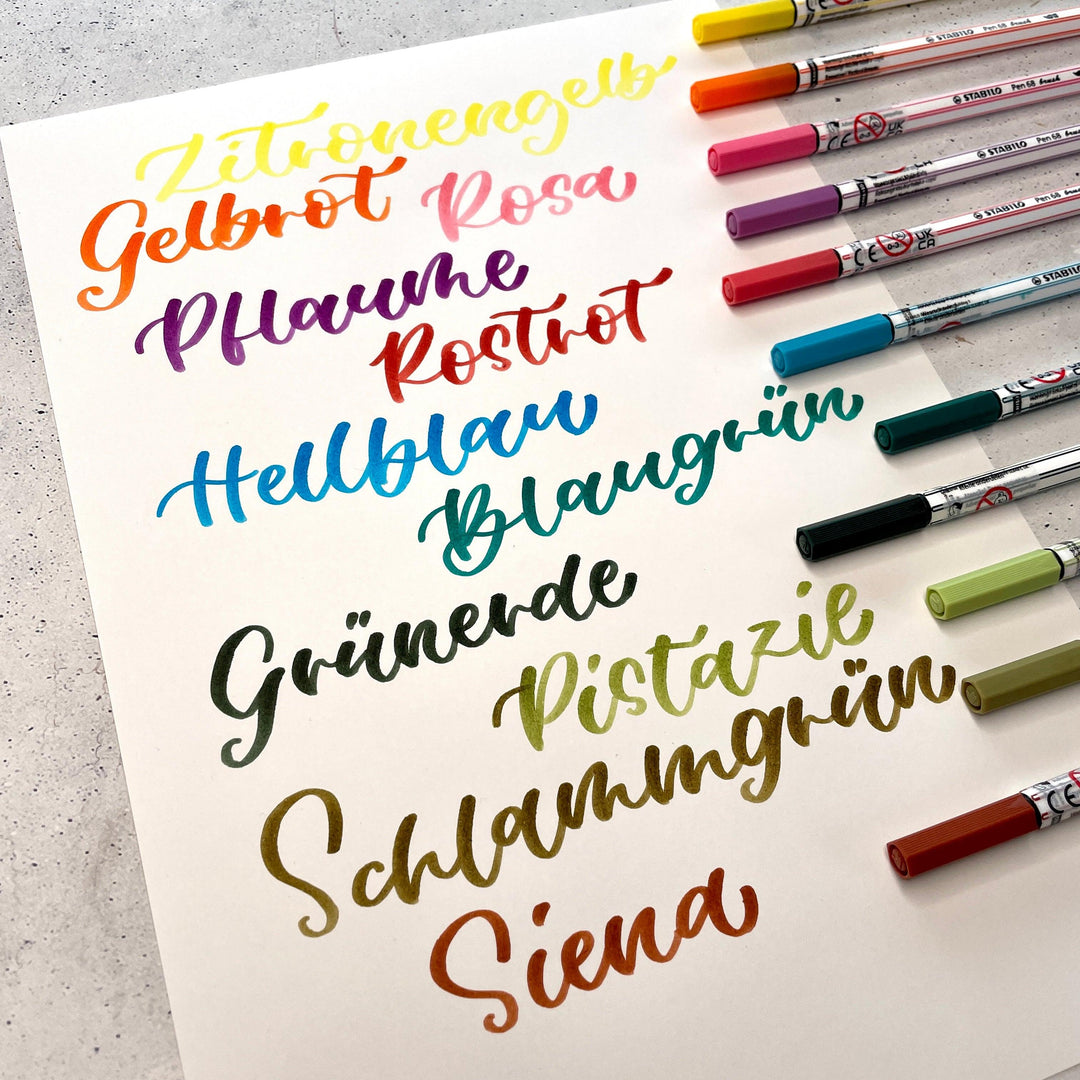 Zitronengelb
Gelbrot
Rosa
Pflaume
Rostrot
Hellblau
Blaugrün
Grünerde
Pistazie
Schlammgrün
Siena
STABILO Pen 68 brush
CE UKCA STABILO Pen 68 brush
STABILO Pen 68 brush
CE 0-3 UKCA STABILO Pen 68 brush
STABILO
CE
CE